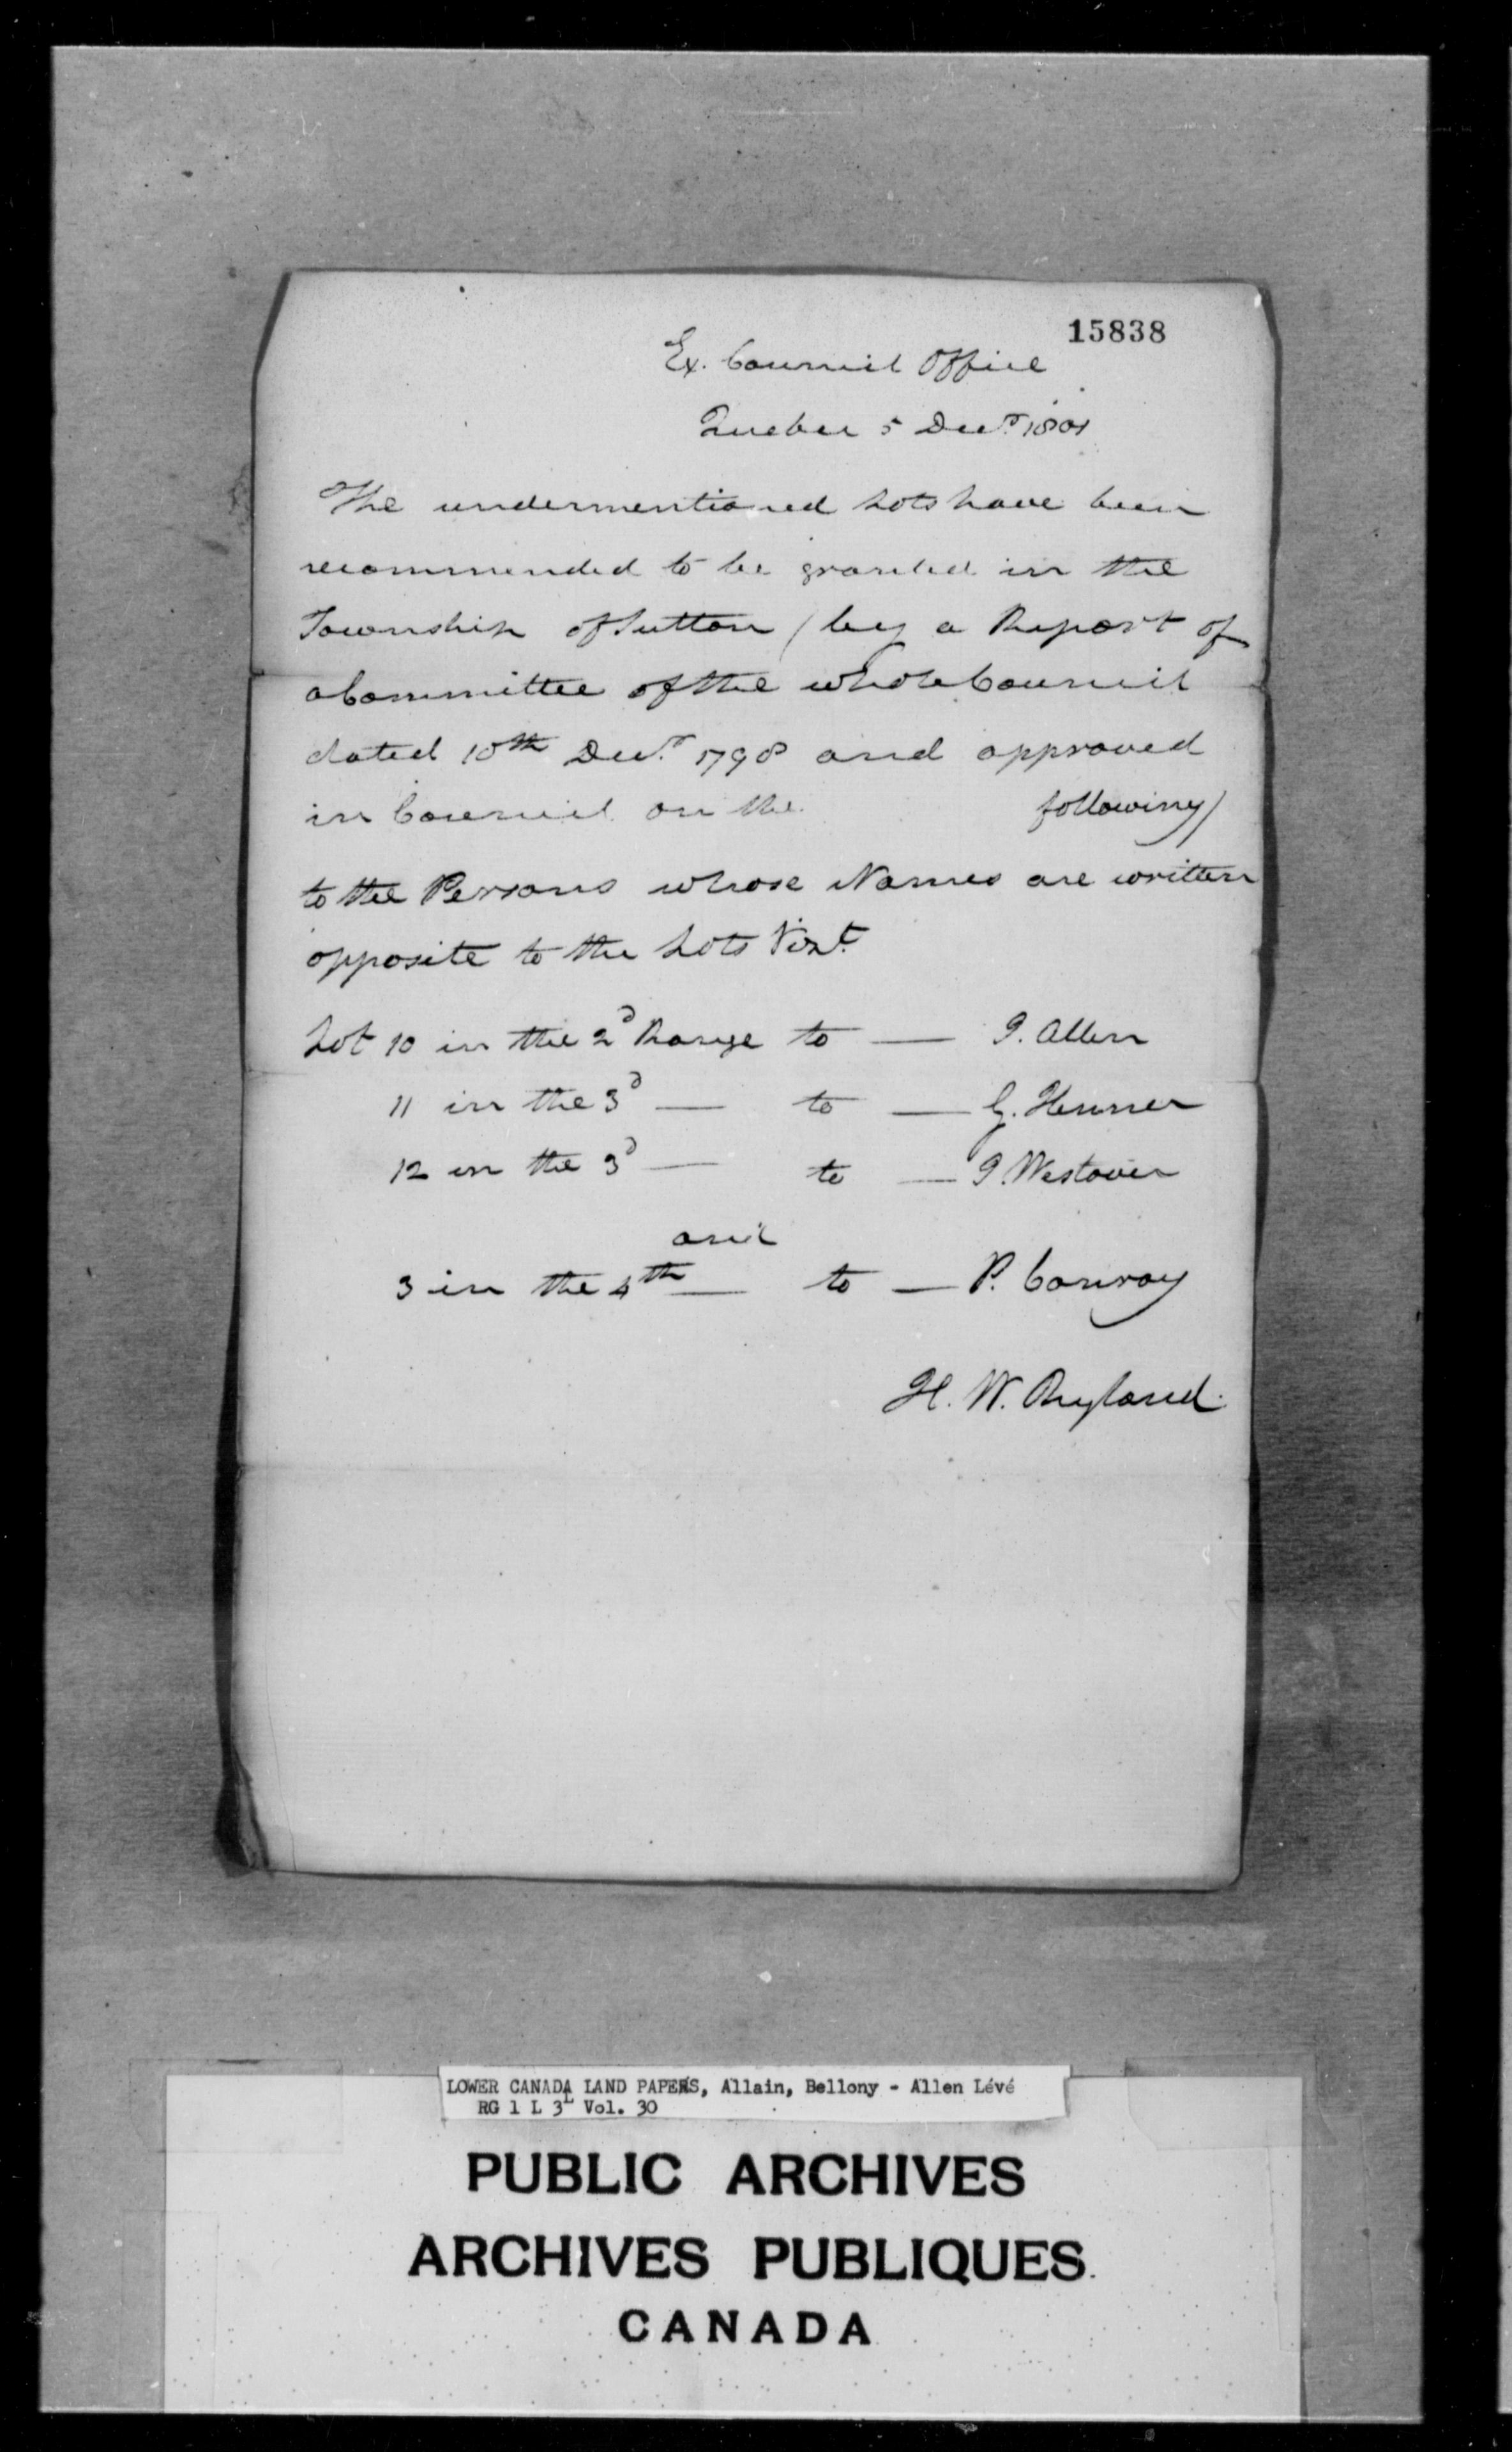 15838
Ex. Council Office
Quebec 5 Decr. 1801
The undermentioned Lots have been
recommended to be granted in the
Township of Sutton (by a Report of
a Committee of the whole Council
dated 10th Decr. 1798 and approved
in Council on the following)
to the Persons whose Names are written
opposite to the Lots Vizt.
Lot 10 in the 2d Range to — J. Allen
11 in the 3d — to — G.
12 in the 3d — to — J. Westover
and
3 in the 4th — to — P. Conroy
H. W. Ryland.
LOWER CANADA LAND PAPERS, Allain, Bellony - Allen Lévé
RG 1 L 3L Vol. 30
PUBLIC ARCHIVES
ARCHIVES PUBLIQUES
CANADA